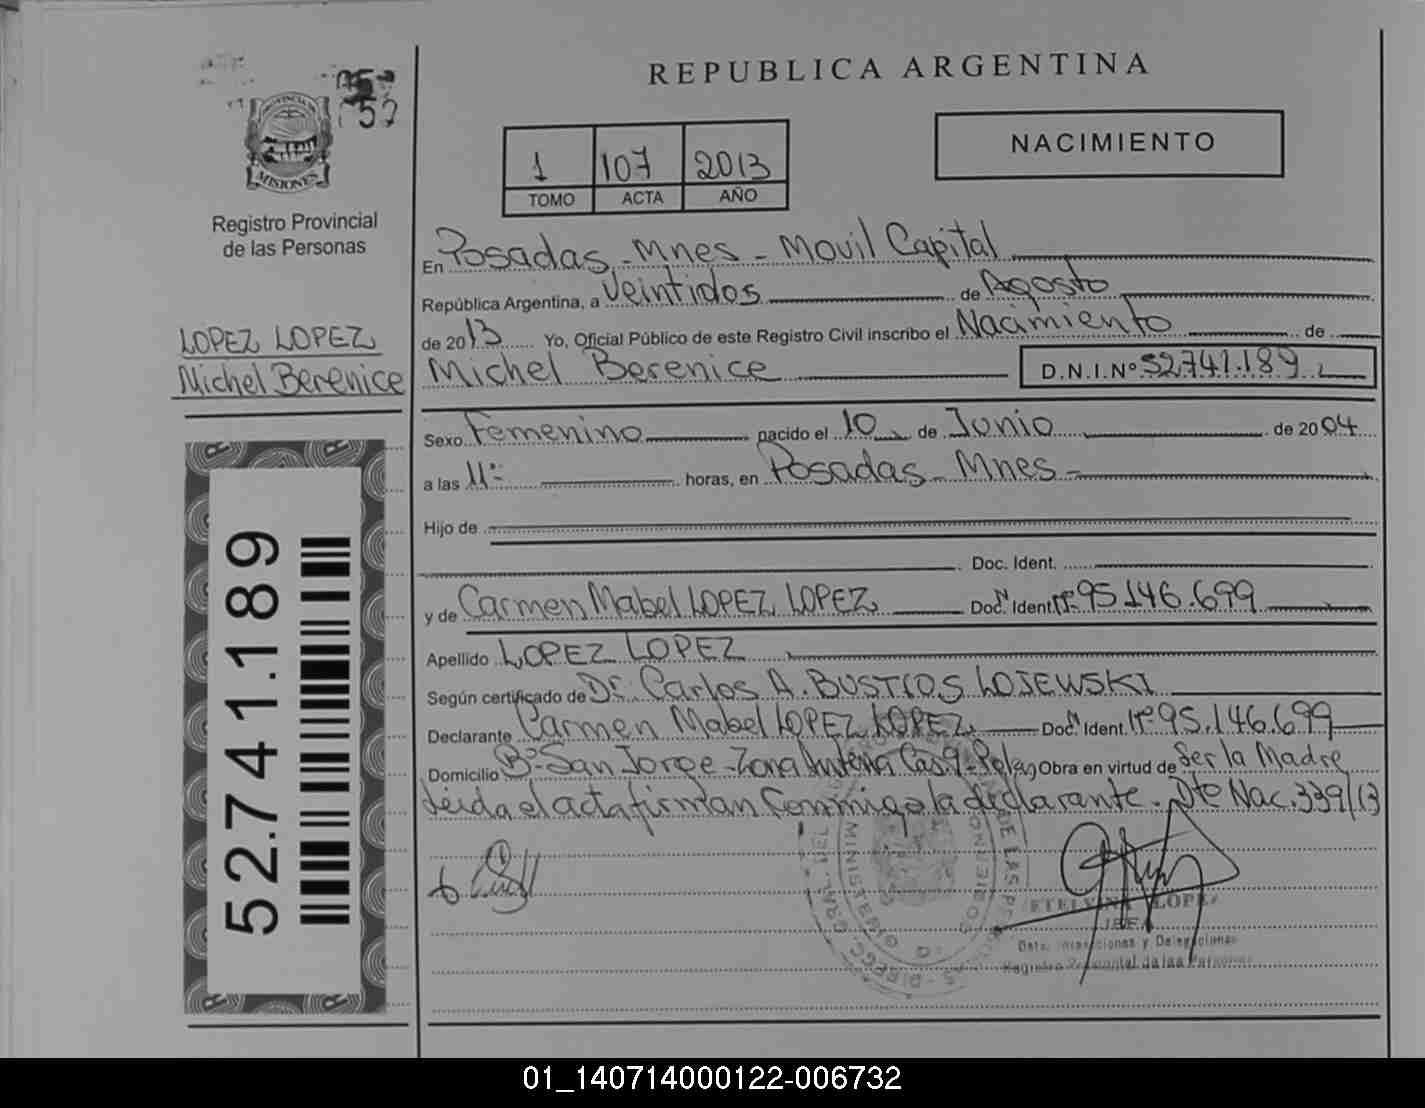 REPUBLICA ARGENTINA
52
MISIONES
Registro Provincial
de las Personas
1 107 2013
TOMO ACTA AÑO
NACIMIENTO
LOPEZ LOPEZ
Michel Berenice
52.741.189
En Posadas - Mnes - Movil Capital
República Argentina, a Veintidos de Agosto
de 2013 Yo, Oficial Público de este Registro Civil inscribo el Nacimiento de
Michel Berenice D.N.I.Nº 52.741.189
Sexo Femenino nacido el 10 de Junio de 2004
a las 11 horas, en Posadas - Mnes -
Hijo de
Doc. Ident.
y de Carmen Mabel LOPEZ LOPEZ Doc. Ident. Nº 95.146.699
Apellido LOPEZ LOPEZ
Según certificado de Dr. Carlos A. BUSTIOS LOJEWSKI
Declarante Carmen Mabel LOPEZ LOPEZ Doc. Ident. Nº 95.146.699
Domicilio Bº San Jorge - Zona Antena Cas 9 - Obra en virtud de Ser la Madre
Leida el acta firman Conmigo la declarante. Dto Nac. 339/13
ETELVINA LOPEZ
JEFA
Dpto. Inspecciones y Delegaciones
Registro Provincial de las Personas
01_140714000122-006732